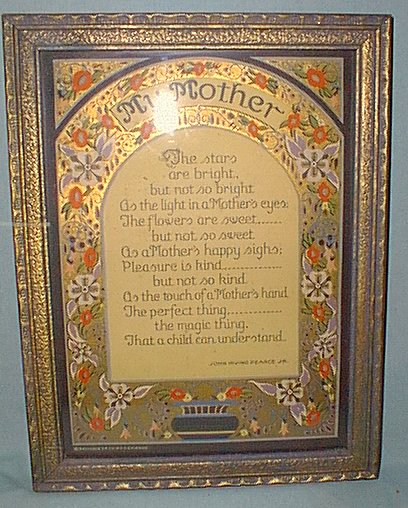 My Mother
The stars
are bright,
but not so bright
As the light in a Mother's eyes;
The flowers are sweet.......
but not so sweet
As a Mother's happy sighs;
Pleasure is kind..............
but not so kind
As the touch of a Mother's hand
The perfect thing.............
the magic thing,
That a child can understand...
JOHN IRVING PEARCE JR.